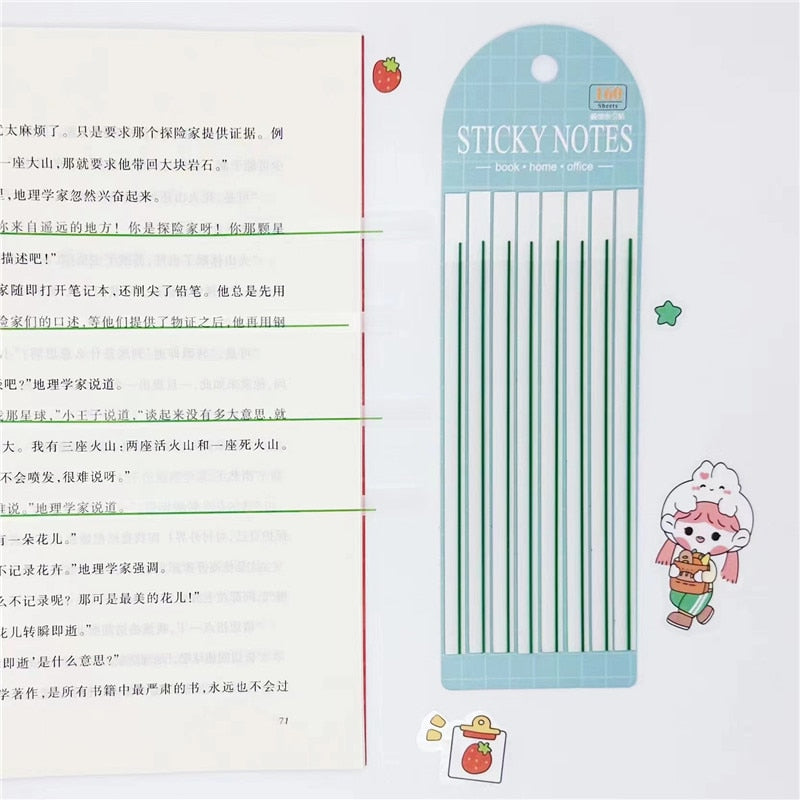 太麻烦了。只是要求那个探险家提供证据。例
一座大山，那就要求他带回大块岩石。”
里，地理学家忽然兴奋起来。
你来自遥远的地方！你是探险家呀！你那颗星
描述吧！”
家随即打开笔记本，还削尖了铅笔。他总是先用
险家们的口述，等他们提供了物证之后，他再用钢
吧？”地理学家说道。
那星球，”小王子说道，“谈起来没有多大意思，就
大。我有三座火山：两座活火山和一座死火山。
不会喷发，很难说呀。”
难说。”地理学家说道。
有一朵花儿。”
不记录花卉。”地理学家强调。
么不记录呢？那可是最美的花儿！”
花儿转瞬即逝。”
即逝’是什么意思？”
学著作，是所有书籍中最严肃的书，永远也不会过
71
160
Sheets
STICKY NOTES
book • home • office